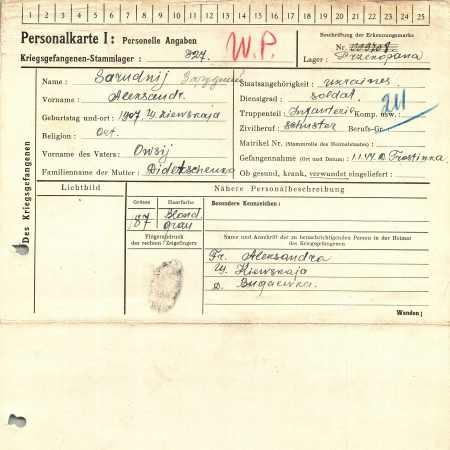 1 2 3 4 5 6 7 8 9 10 11 12 13 14 15 16 17 18 19 20 21 22 23 24 25
Personalkarte I: Personelle Angaben
Kriegsgefangenen-Stammlager: 327.
W.P.
Beschriftung der Erkennungsmarke
Nr.
Lager: Przekopana
Des Kriegsgefangenen
Name: Sarudnij
Vorname: Aleksandr.
Geburtstag und -ort: 1907, Kiewskaja
Religion: Ort.
Vorname des Vaters: Owsij
Familienname der Mutter:
Staatsangehörigkeit: ukraines
Dienstgrad: soldat.
Truppenteil: Infanterie Komp. usw.:
Zivilberuf: schuster Berufs-Gr.:
211
Matrikel Nr. (Stammrolle des Heimatstaates)
Gefangennahme (Ort und Datum): 1.1.44
Ob gesund, krank, verwundet eingeliefert:
Lichtbild
Nähere Personalbeschreibung
Grösse
Haarfarbe
Besondere Kennzeichen:
Blond.
grau
Fingerabdruck
des rechten Zeigefingers
Name und Anschrift der zu benachrichtigenden Person in der Heimat
des Kriegsgefangenen
Fr. Aleksandra
Kiewskaja
Bugaewka.
Wenden;